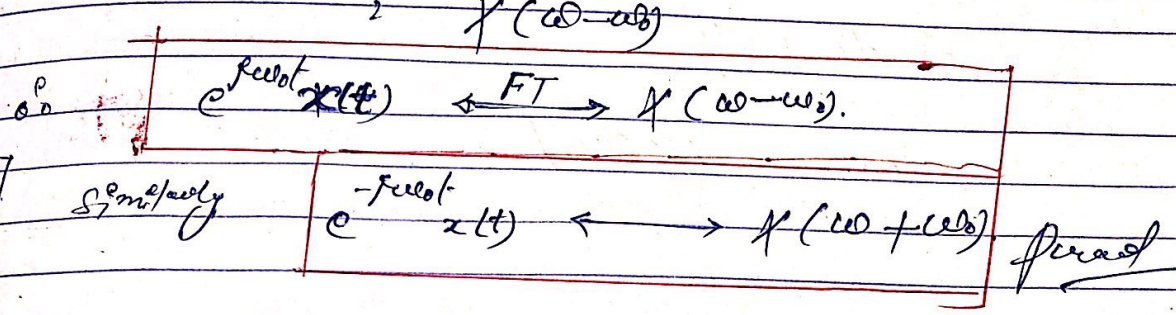 X(ω-ω₀)
∴ e^{jω₀t} x(t) ⟷ FT X(ω-ω₀).
Similarly e^{-jω₀t} x(t) ⟷ X(ω+ω₀).